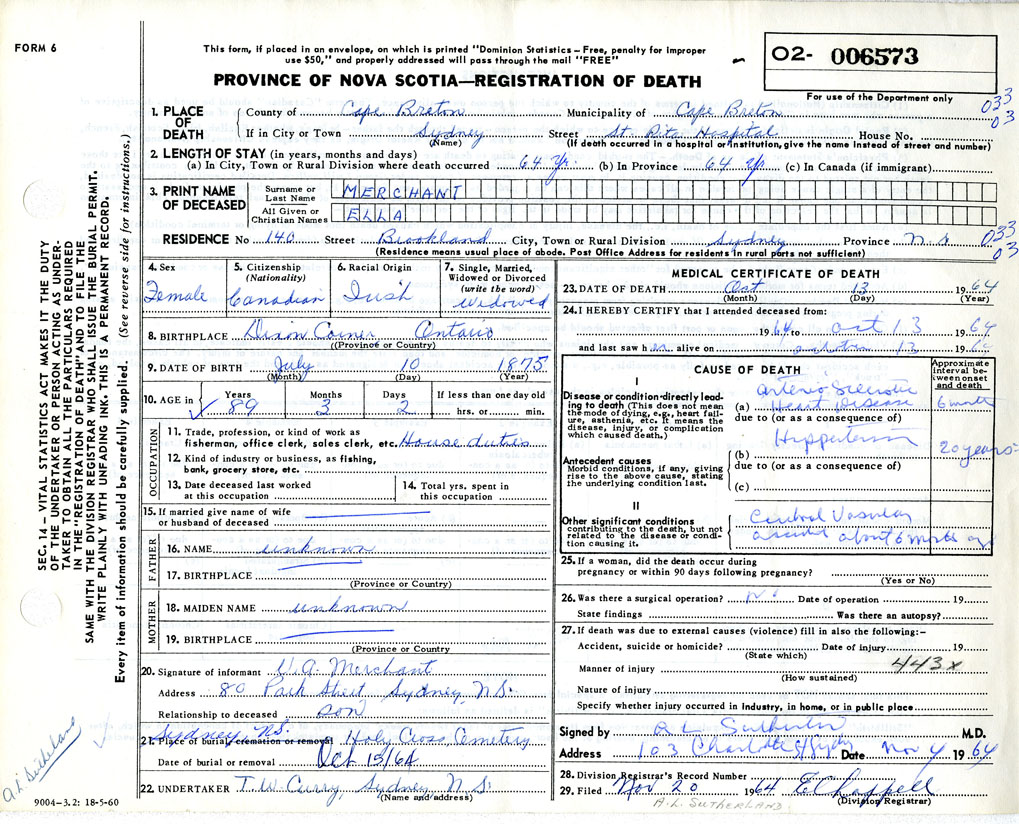 FORM 6
This form, if placed in an envelope, on which is printed "Dominion Statistics – Free, penalty for improper
use $50," and properly addressed will pass through the mail "FREE"
O2- 006573
PROVINCE OF NOVA SCOTIA—REGISTRATION OF DEATH
For use of the Department only
033
03
1. PLACE OF DEATH
County of Cape Breton Municipality of Cape Breton
If in City or Town Sydney Street St. Rita Hospital House No.
(Name) (If death occurred in a hospital or institution, give the name instead of street and number)
2. LENGTH OF STAY (in years, months and days)
(a) In City, Town or Rural Division where death occurred 64 Yr. (b) In Province 64 Yr. (c) In Canada (if immigrant)
3. PRINT NAME OF DECEASED
Surname or Last Name MERCHANT
All Given or Christian Names ELLA
RESIDENCE No 140 Street Brookland City, Town or Rural Division Sydney Province N.S.
033
03
(Residence means usual place of abode. Post Office Address for residents in rural parts not sufficient)
4. Sex
Female
5. Citizenship
(Nationality)
Canadian
6. Racial Origin
Irish
7. Single, Married,
Widowed or Divorced
(write the word)
Widowed
8. BIRTHPLACE Dixon Corner Ontario
(Province or Country)
9. DATE OF BIRTH July 10 1875
(Month) (Day) (Year)
10. AGE in
Years Months Days If less than one day old
89 3 2 hrs. or min.
OCCUPATION
11. Trade, profession, or kind of work as
fisherman, office clerk, sales clerk, etc. House duties
12. Kind of industry or business, as fishing,
bank, grocery store, etc.
13. Date deceased last worked
at this occupation
14. Total yrs. spent in
this occupation
15. If married give name of wife
or husband of deceased
FATHER
16. NAME unknown
17. BIRTHPLACE
(Province or Country)
MOTHER
18. MAIDEN NAME unknown
19. BIRTHPLACE
(Province or Country)
20. Signature of informant W.A. Merchant
Address 80 Park Street Sydney N.S.
Relationship to deceased son
Sydney, N.S.
21. Place of burial cremation or removal Holy Cross Cemetery
Date of burial or removal Oct 15/64
22. UNDERTAKER T.W. Curry, Sydney N.S.
(Name and address)
9004-3.2: 18-5-60
MEDICAL CERTIFICATE OF DEATH
23. DATE OF DEATH Oct 13 1964
(Month) (Day) (Year)
24. I HEREBY CERTIFY that I attended deceased from:
1964 to Oct 13 1964
and last saw her alive on October 13 19
CAUSE OF DEATH
Approximate
interval between onset
and death
I
Disease or condition directly leading to death (This does not mean
the mode of dying, e.g., heart failure, asthenia, etc. It means the
disease, injury, or complication
which caused death.)
Arterio Sclerotic
(a) Heart Disease 6 months
due to (or as a consequence of)
Hypertension
(b) 20 years
Antecedent causes
Morbid conditions, if any, giving
rise to the above cause, stating
the underlying condition last.
due to (or as a consequence of)
(c)
II
Other significant conditions
contributing to the death, but not
related to the disease or condition causing it.
Cerebral Vascular
accident about 6 months ago
25. If a woman, did the death occur during
pregnancy or within 90 days following pregnancy?
(Yes or No)
26. Was there a surgical operation? No Date of operation 19
State findings Was there an autopsy?
27. If death was due to external causes (violence) fill in also the following:—
Accident, suicide or homicide? Date of injury 19
(State which)
443x
Manner of injury
(How sustained)
Nature of injury
Specify whether injury occurred in Industry, in home, or in public place
Signed by A L Sutherland M.D.
Address 103 Charlotte St Sydney Date Nov 4 1964
28. Division Registrar's Record Number
29. Filed Nov 20 1964 E Chappell
(Division Registrar)
A.L. SUTHERLAND.
SEC. 14 – VITAL STATISTICS ACT MAKES IT THE DUTY
OF THE UNDERTAKER OR PERSON ACTING AS UNDERTAKER TO OBTAIN ALL THE PARTICULARS REQUIRED
IN THE "REGISTRATION OF DEATH" AND TO FILE THE
SAME WITH THE DIVISION REGISTRAR WHO SHALL ISSUE THE BURIAL PERMIT.
WRITE PLAINLY WITH UNFADING INK. THIS IS A PERMANENT RECORD.
Every item of information should be carefully supplied. (See reverse side for instructions.)
A.L. Sutherland